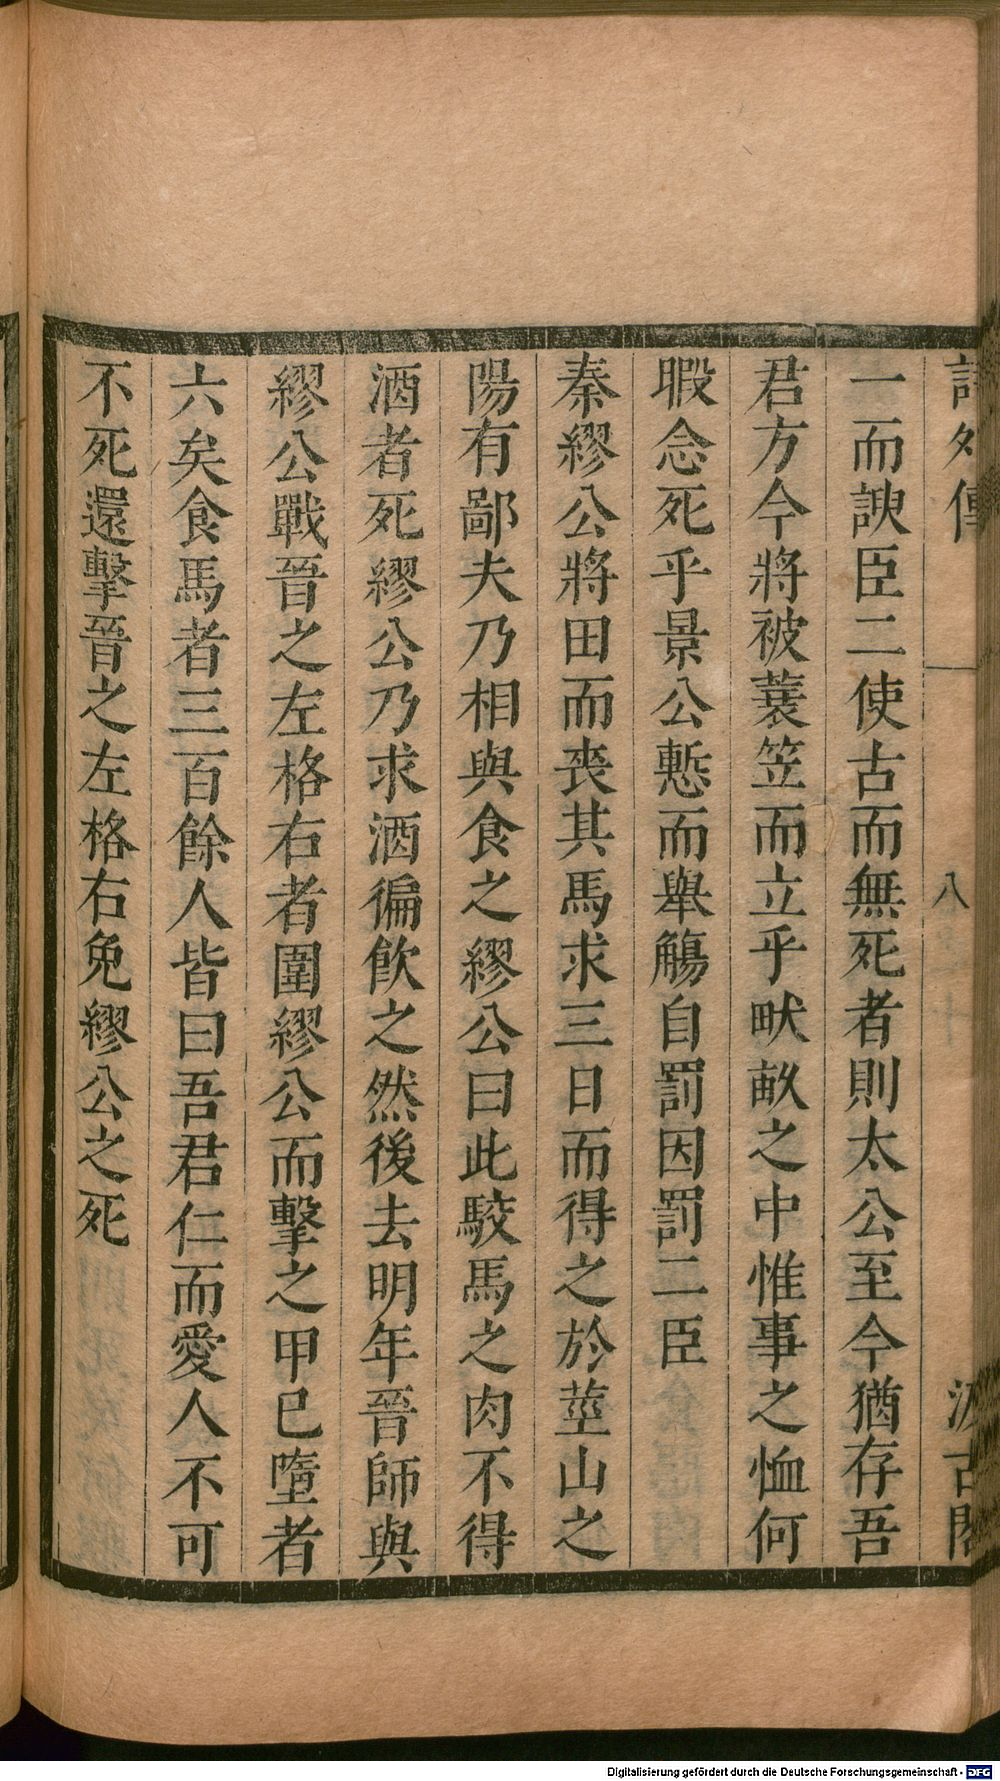 詩外傳 八 汲古閣
一而諛臣二使古而無死者則太公至今猶存吾
君方今將被蓑笠而立乎畎畝之中惟事之恤何
暇念死乎景公慙而舉觴自罰因罰二臣
秦繆公將田而喪其馬求三日而得之於莖山之
陽有鄙夫乃相與食之繆公曰此駮馬之肉不得
酒者死繆公乃求酒徧飲之然後去明年晉師與
繆公戰晉之左格右者圍繆公而擊之甲已墮者
六矣食馬者三百餘人皆曰吾君仁而愛人不可
不死還擊晉之左格右免繆公之死
Digitalisierung gefördert durch die Deutsche Forschungsgemeinschaft - DFG